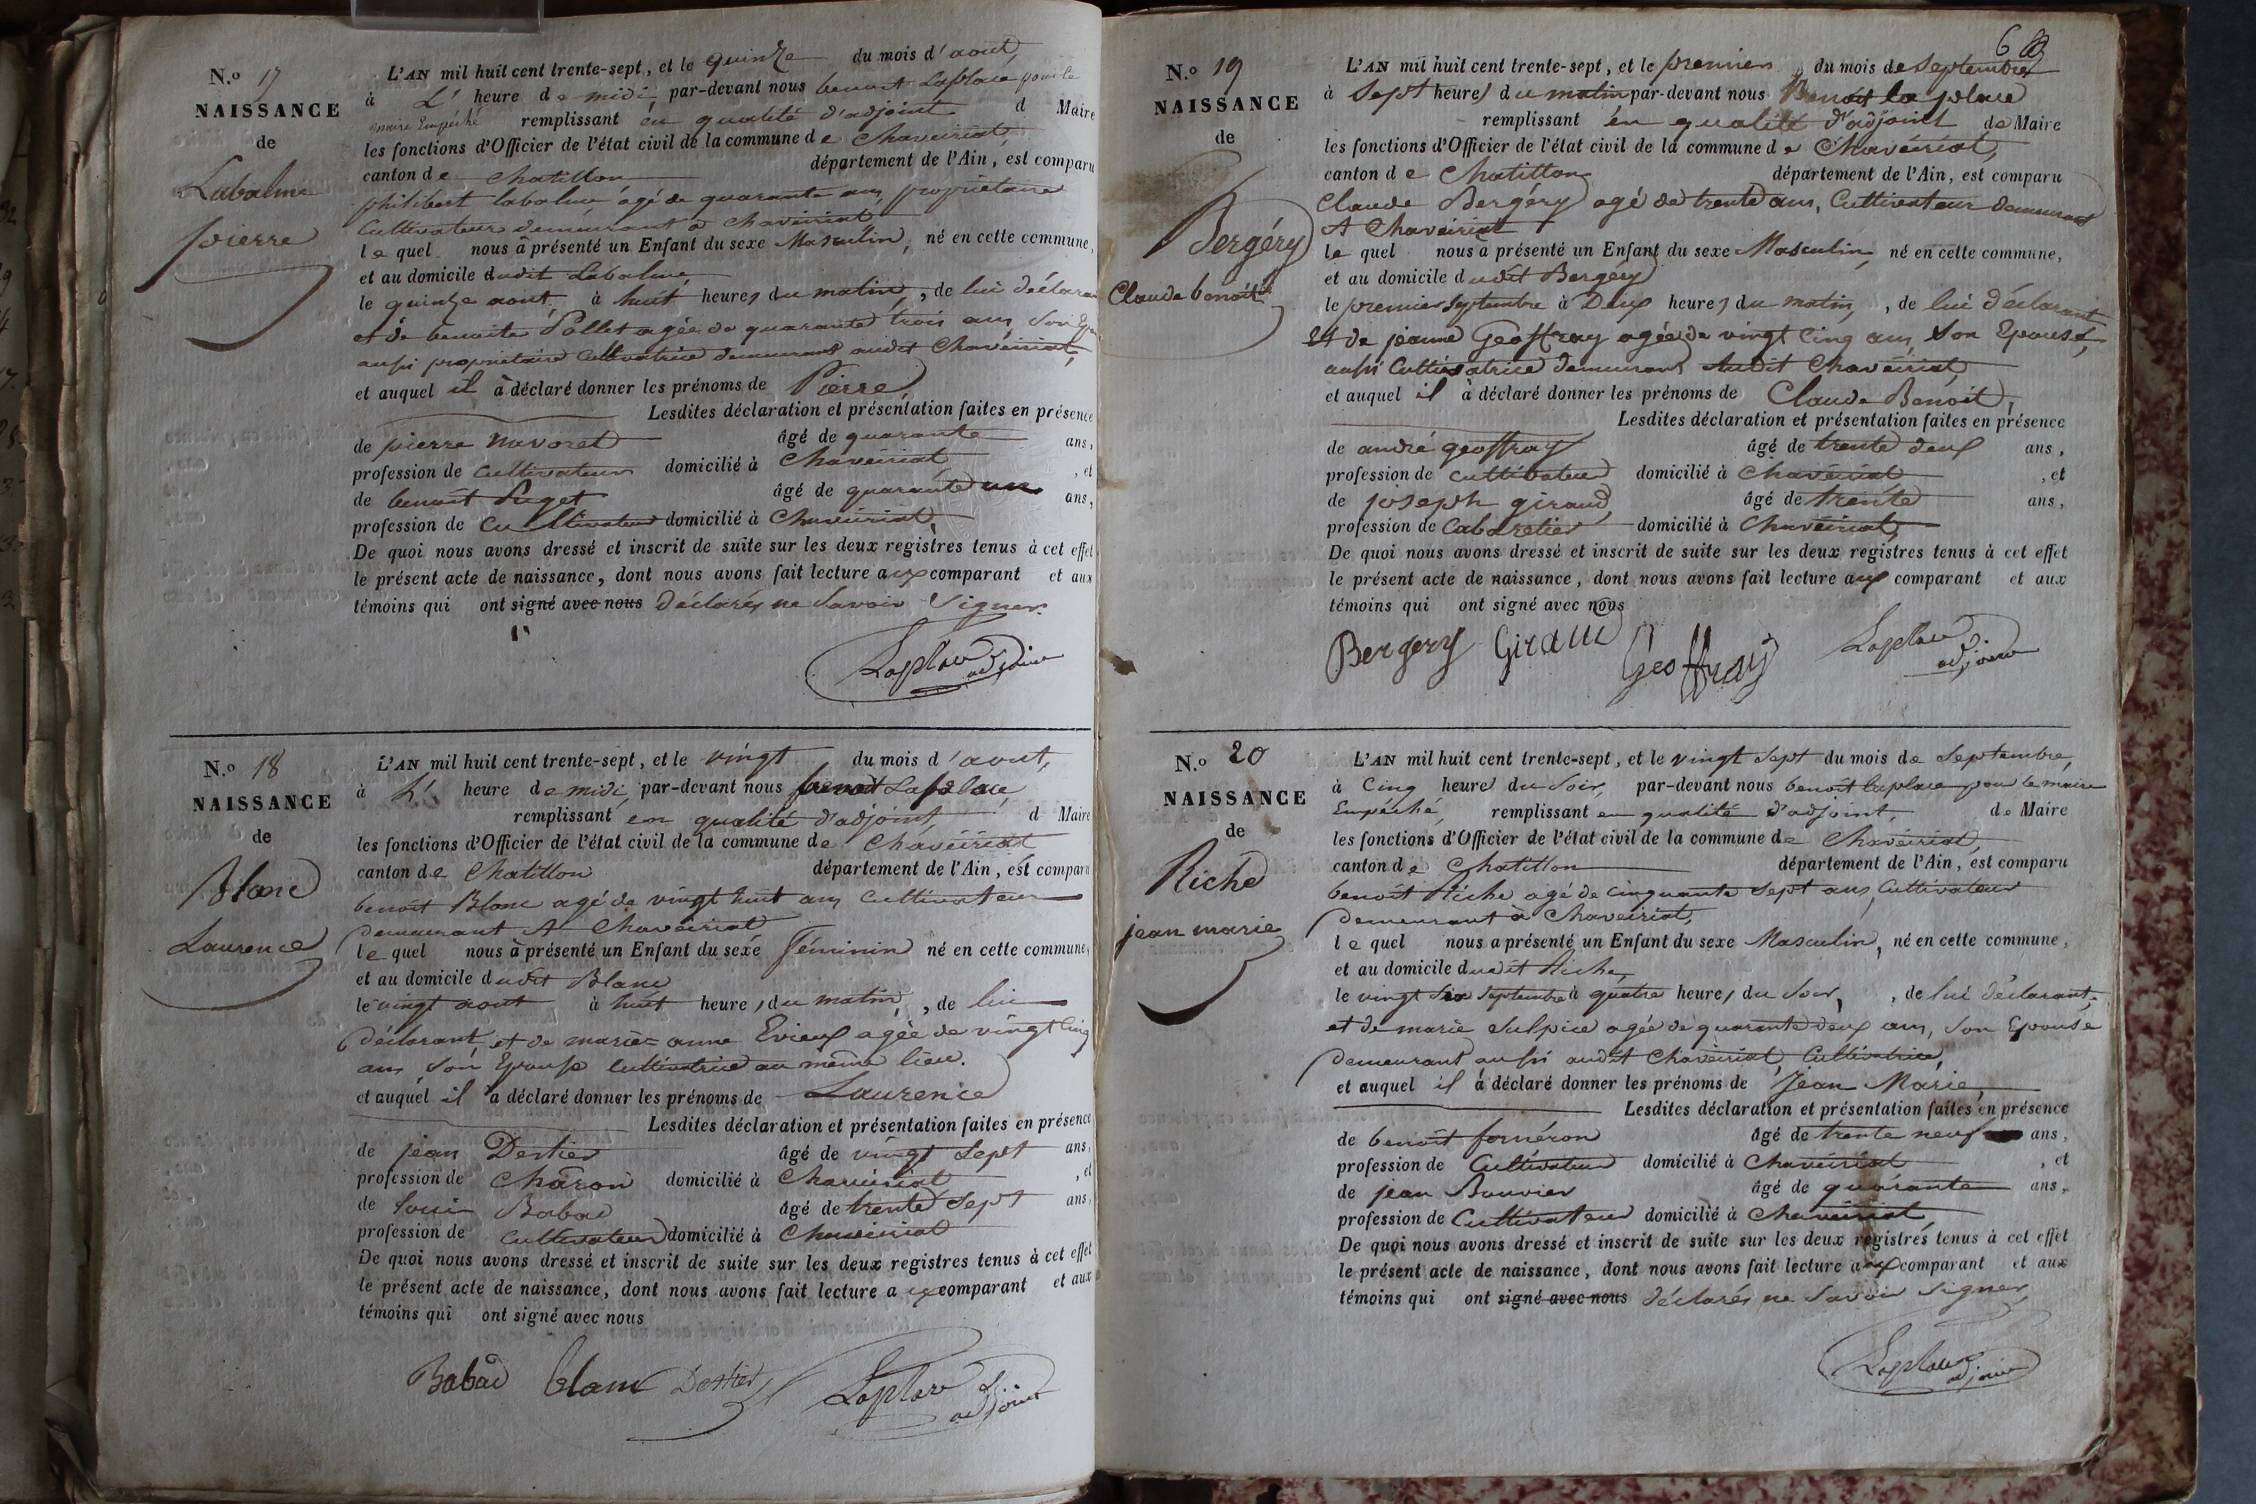 N.o 17
NAISSANCE
de
Labalme
pierre
L'AN mil huit cent trente-sept, et le quinze du mois d'aout,
à L' heure de midi, par-devant nous benoit Laplace pour le
maire Empéché remplissant en qualité d'adjoint d Maire
les fonctions d'Officier de l'état civil de la commune de Chaveiriat,
canton de Chatillon département de l'Ain, est comparu
philibert labalme âgé de quarante ans, propriétaire
Cultivateur demeurant à Chaveiriat
le quel nous à présenté un Enfant du sexe Masculin, né en cette commune,
et au domicile dudit Labalme,
le quinze aout, à huit heures du matin, de lui déclarant
et de benoite Pollet agée de quarante trois ans, son Epouse
aussi propriétaire Cultivatrice demeurant audit Chaveiriat,
et auquel il à déclaré donner les prénoms de Pierre
Lesdites déclaration et présentation faites en présence
de pierre navoret âgé de quarante ans,
profession de cultivateur domicilié à Chaveiriat, et
de benoit Puget âgé de quarante un ans,
profession de Cultivateur domicilié à Chaveiriat,
De quoi nous avons dressé et inscrit de suite sur les deux registres tenus à cet effet
le présent acte de naissance, dont nous avons fait lecture aux comparant et aux
témoins qui ont signé avec nous déclarés ne Savoir Signer.
Laplace adjoint
N.o 18
NAISSANCE
de
Blanc
Laurence
L'AN mil huit cent trente-sept, et le vingt du mois d'aout,
à L' heure de midi par-devant nous benoit Laplace
remplissant en qualité d'adjoint, d Maire
les fonctions d'Officier de l'état civil de la commune de Chaveiriat
canton de Chatillon département de l'Ain, est comparu
benoit Blanc agé de vingt huit ans Cultivateur
demeurant A Chaveiriat
le quel nous à présenté un Enfant du sexe féminin né en cette commune,
et au domicile dudit Blanc
le vingt aout à huit heures du matin, de lui
déclarant et de marie-anne Evieux agée de vingt Cinq
ans, Son Epouse Cultivatrice au même lieu.
et auquel il à déclaré donner les prénoms de Laurence
Lesdites déclaration et présentation faites en présence
de jean Dertier âgé de vingt Sept ans,
profession de Charon domicilié à Chaveiriat, et
de Louis Babad âgé de trente Sept ans,
profession de Cultivateur domicilié à Chaveiriat
De quoi nous avons dressé et inscrit de suite sur les deux registres tenus à cet effet
le présent acte de naissance, dont nous avons fait lecture aux comparant et aux
témoins qui ont signé avec nous
Babad blanc Dertier Laplace adjoint
N.o 19
NAISSANCE
de
Bergéry
Claude benoit
L'AN mil huit cent trente-sept, et le premier du mois de Septembre
à Sept heures du matin par-devant nous Benoit la place
remplissant en qualité d'adjoint de Maire
les fonctions d'Officier de l'état civil de la commune de Chaveiriat,
canton de Chatillon département de l'Ain, est comparu
Claude Bergéry agé de trente ans, Cultivateur demeurant
A Chaveiriat
le quel nous à présenté un Enfant du sexe Masculin, né en cette commune,
et au domicile dudit Bergéry
le premier Septembre à Deux heures du matin, de lui déclarant
Et de jeanne Geoffray agée de vingt Cinq ans, Son Epouse,
aussi Cultivatrice demeurant Audit Chaveiriat,
et auquel il à déclaré donner les prénoms de Claude Benoit,
Lesdites déclaration et présentation faites en présence
de andré geoffray âgé de trente deux ans,
profession de cultivateur domicilié à Chaveiriat, et
de joseph giraud, âgé de trente ans,
profession de Cabaretier domicilié à Chaveiriat,
De quoi nous avons dressé et inscrit de suite sur les deux registres tenus à cet effet
le présent acte de naissance, dont nous avons fait lecture aux comparant et aux
témoins qui ont signé avec nous
Bergery Giraud Geoffray Laplace adjoint
N.o 20
NAISSANCE
de
Riche
jean marie
L'AN mil huit cent trente-sept, et le vingt Sept du mois de Septembre,
à Cinq heures du Soir, par-devant nous benoit laplace pour le maire
Empéché, remplissant en qualité d'adjoint, de Maire
les fonctions d'Officier de l'état civil de la commune de Chaveiriat,
canton de Chatillon département de l'Ain, est comparu
benoit Riche agé de Cinquante Sept ans, Cultivateur
demeurant à Chaveiriat,
le quel nous a présenté un Enfant du sexe Masculin, né en cette commune,
et au domicile dudit Riche,
le vingt Six Septembre à quatre heures du Soir, de lui déclarant,
et de marie Sulpice agée de quarante deux ans, Son Epouse
demeurant aussi audit Chaveiriat, Cultivatrice,
et auquel il à déclaré donner les prénoms de Jean Marie,
Lesdites déclaration et présentation faites en présence
de benoit fornéron âgé de trente neuf ans,
profession de Cultivateur domicilié à Chaveiriat, et
de jean Bouvier âgé de quarante ans,
profession de Cultivateur domicilié à Chaveiriat,
De quoi nous avons dressé et inscrit de suite sur les deux registrés tenus à cet effet
le présent acte de naissance, dont nous avons fait lecture aux comparant et aux
témoins qui ont signé avec nous déclarés ne Savoir Signer,
Laplace adjoint